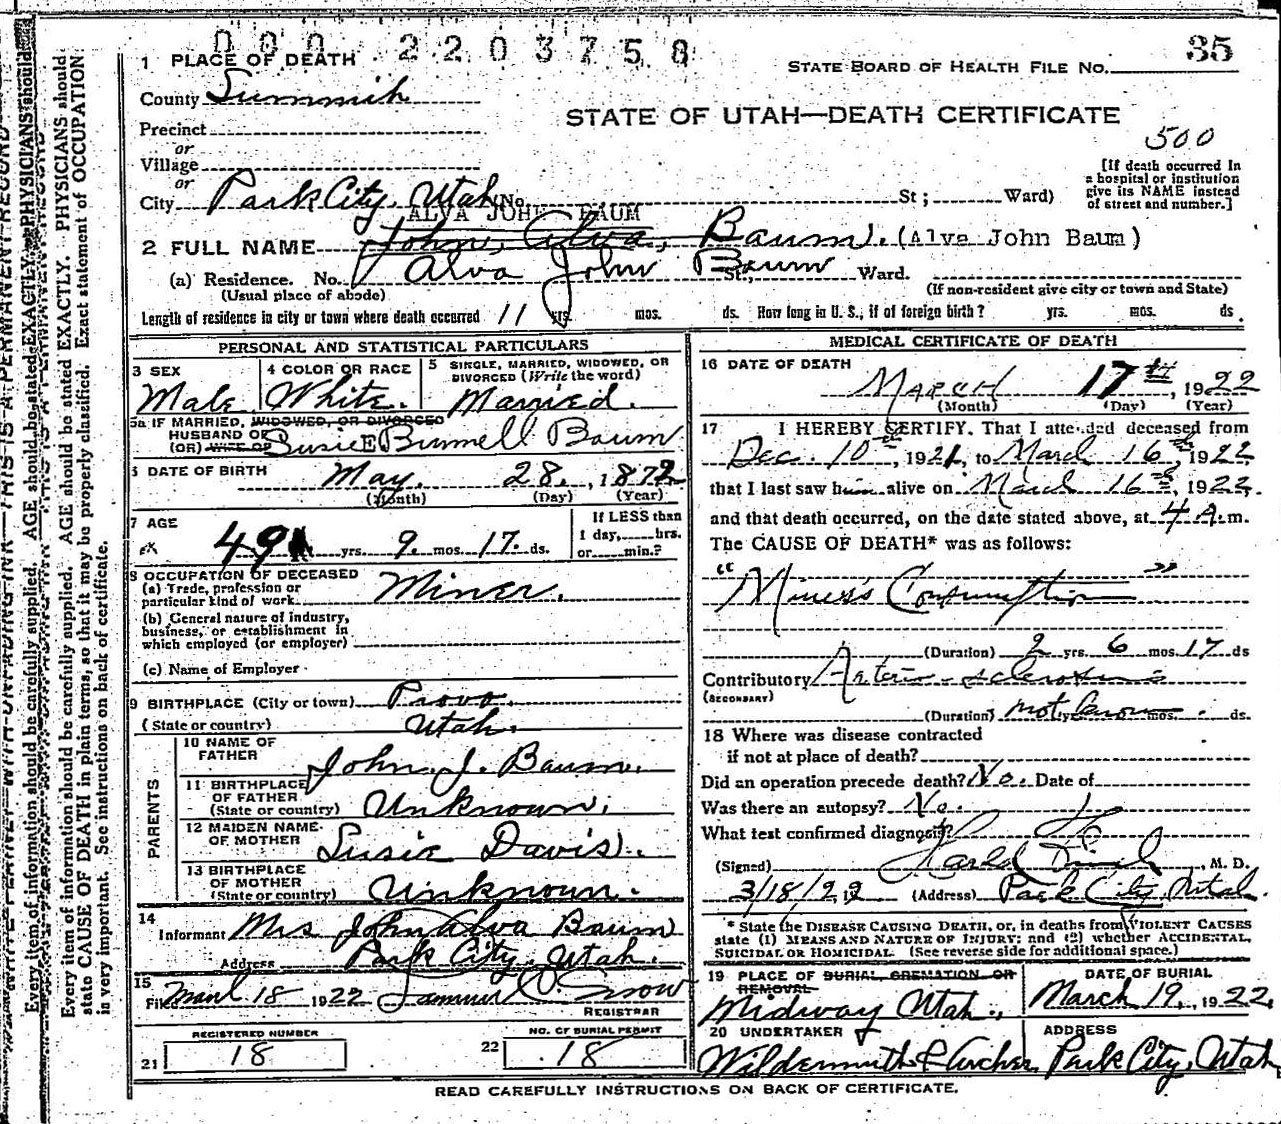 000 2203758
35
1 PLACE OF DEATH
STATE BOARD OF HEALTH FILE NO.
County Summit
STATE OF UTAH—DEATH CERTIFICATE
Precinct
or
500
Village
or
[If death occurred in a hospital or institution give its NAME instead of street and number.]
City Park City, Utah No. St; Ward)
ALVA JOHN BAUM
2 FULL NAME John, Alva, Baum. (Alva John Baum)
Alva John Baum
(a) Residence. No. St., Ward.
(Usual place of abode) (If non-resident give city or town and State)
Length of residence in city or town where death occurred 11 yrs. mos. ds. How long in U. S., if of foreign birth? yrs. mos. ds.
PERSONAL AND STATISTICAL PARTICULARS
3 SEX Male
4 COLOR OR RACE White.
5 SINGLE, MARRIED, WIDOWED, OR DIVORCED (Write the word) Married.
5a IF MARRIED, WIDOWED, OR DIVORCED
HUSBAND OF
(OR) WIFE OF Susie E Bunnell Baum
6 DATE OF BIRTH May. 28., 1872
(Month) (Day) (Year)
7 AGE 49 yrs. 9. mos. 17. ds.
If LESS than
1 day, hrs.
or min.?
8 OCCUPATION OF DECEASED
(a) Trade, profession or
particular kind of work Miner.
(b) General nature of industry,
business, or establishment in
which employed (or employer)
(c) Name of Employer
9 BIRTHPLACE (City or town) Provo.
(State or country) Utah.
PARENTS
10 NAME OF
FATHER John. J. Baum.
11 BIRTHPLACE
OF FATHER
(State or country) Unknown.
12 MAIDEN NAME
OF MOTHER Susie Davis.
13 BIRTHPLACE
OF MOTHER
(State or country) Unknown.
14
Informant Mrs John Alva Baum
Address Park City, Utah.
15
Filed 18 1922 Snow
REGISTRAR
REGISTERED NUMBER
21 18
NO. OF BURIAL PERMIT
22 18
MEDICAL CERTIFICATE OF DEATH
16 DATE OF DEATH
March 17th, 1922
(Month) (Day) (Year)
17 I HEREBY CERTIFY, That I attended deceased from
Dec. 10th, 1921, to March 16th, 1922
that I last saw him alive on March 16th, 1922,
and that death occurred, on the date stated above, at 4 A.m.
The CAUSE OF DEATH* was as follows:
"Miner's Consumption"
(Duration) 2 yrs. 6 mos. 17 ds
Contributory Arterio-sclerosis
(SECONDARY)
(Duration) not known yrs. mos. ds.
18 Where was disease contracted
if not at place of death?
Did an operation precede death? No. Date of
Was there an autopsy? No.
What test confirmed diagnosis?
(Signed) , M. D.
3/18/22, 19 (Address) Park City, Utah.
* State the DISEASE CAUSING DEATH, or, in deaths from VIOLENT CAUSES
state (1) MEANS AND NATURE OF INJURY; and (2) whether ACCIDENTAL,
SUICIDAL OR HOMICIDAL. (See reverse side for additional space.)
19 PLACE OF BURIAL CREMATION OR
REMOVAL
Midway Utah.,
DATE OF BURIAL
March 19, 1922.
20 UNDERTAKER
Wildermuth & Archer,
ADDRESS
Park City, Utah
READ CAREFULLY INSTRUCTIONS ON BACK OF CERTIFICATE.
Every item of information should be carefully supplied. AGE should be stated EXACTLY. PHYSICIANS should
state CAUSE OF DEATH in plain terms, so that it may be properly classified. Exact statement of OCCUPATION
is very important. See instructions on back of certificate.